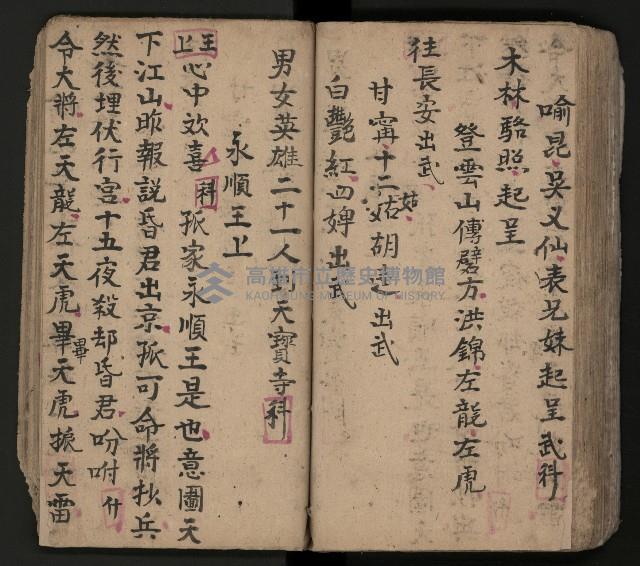 喻昆吳又仙表兄妹起呈武科
木林駱照起呈
登雲山傳劈方洪錦左龍左虎
往長安出武
甘甯十二姑胡出武
姑
白艷紅四婢出武
男女英雄二十一人天寶寺科
永順王上
王上心中欢喜科孤家永順王是也意圖天
下江山昨報説昏君出京孤可命將抄兵
然後埋伏行宫十五夜殺却昏君吩咐什
令大將左天龍左天虎畢天虎振天雷
畢
高雄市立歷史博物館
KAOHSIUNG MUSEUM OF HISTORY